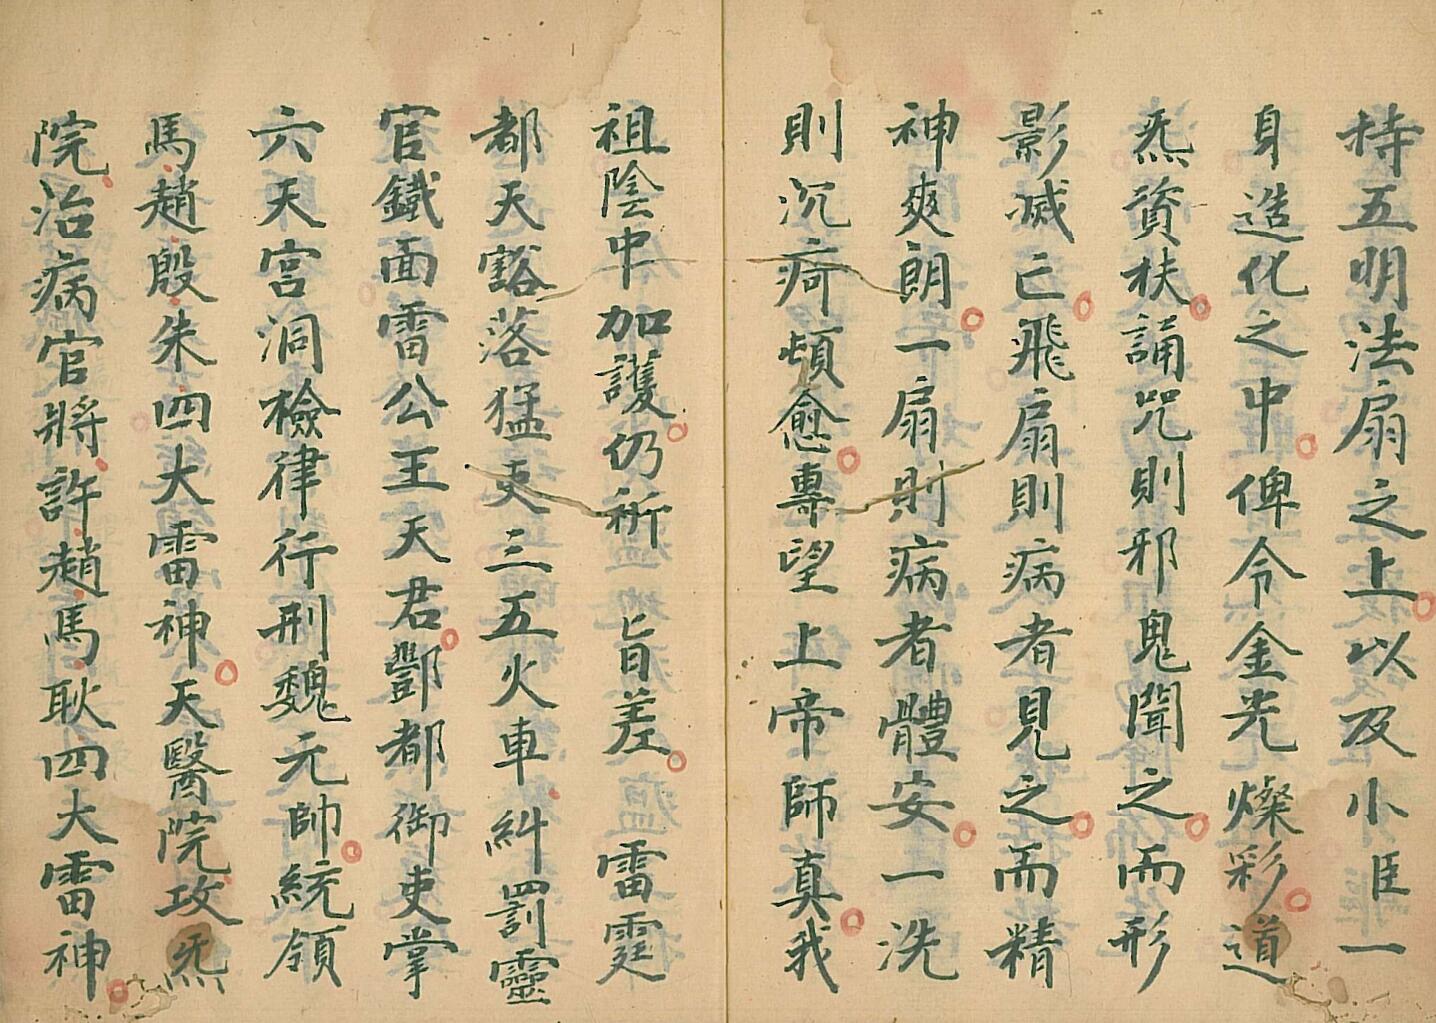 持五明法扇之上以及小臣一
身造化之中俾令金光燦彩道
炁資扶誦咒則邪鬼聞之而形
影滅亡飛扇則病者見之而精
神爽朗一扇則病者體安一洗
則沉疴頓愈專望上帝師真我
祖陰中加護仍祈旨差雷霆
都天豁落猛吏三五火車糾罰靈
官鐵面雷公王天君酆都御史掌
六天宮洞檢律行刑魏元帥統領
馬趙殷朱四大雷神天醫院攻炁
院治病官將許趙馬耿四大雷神